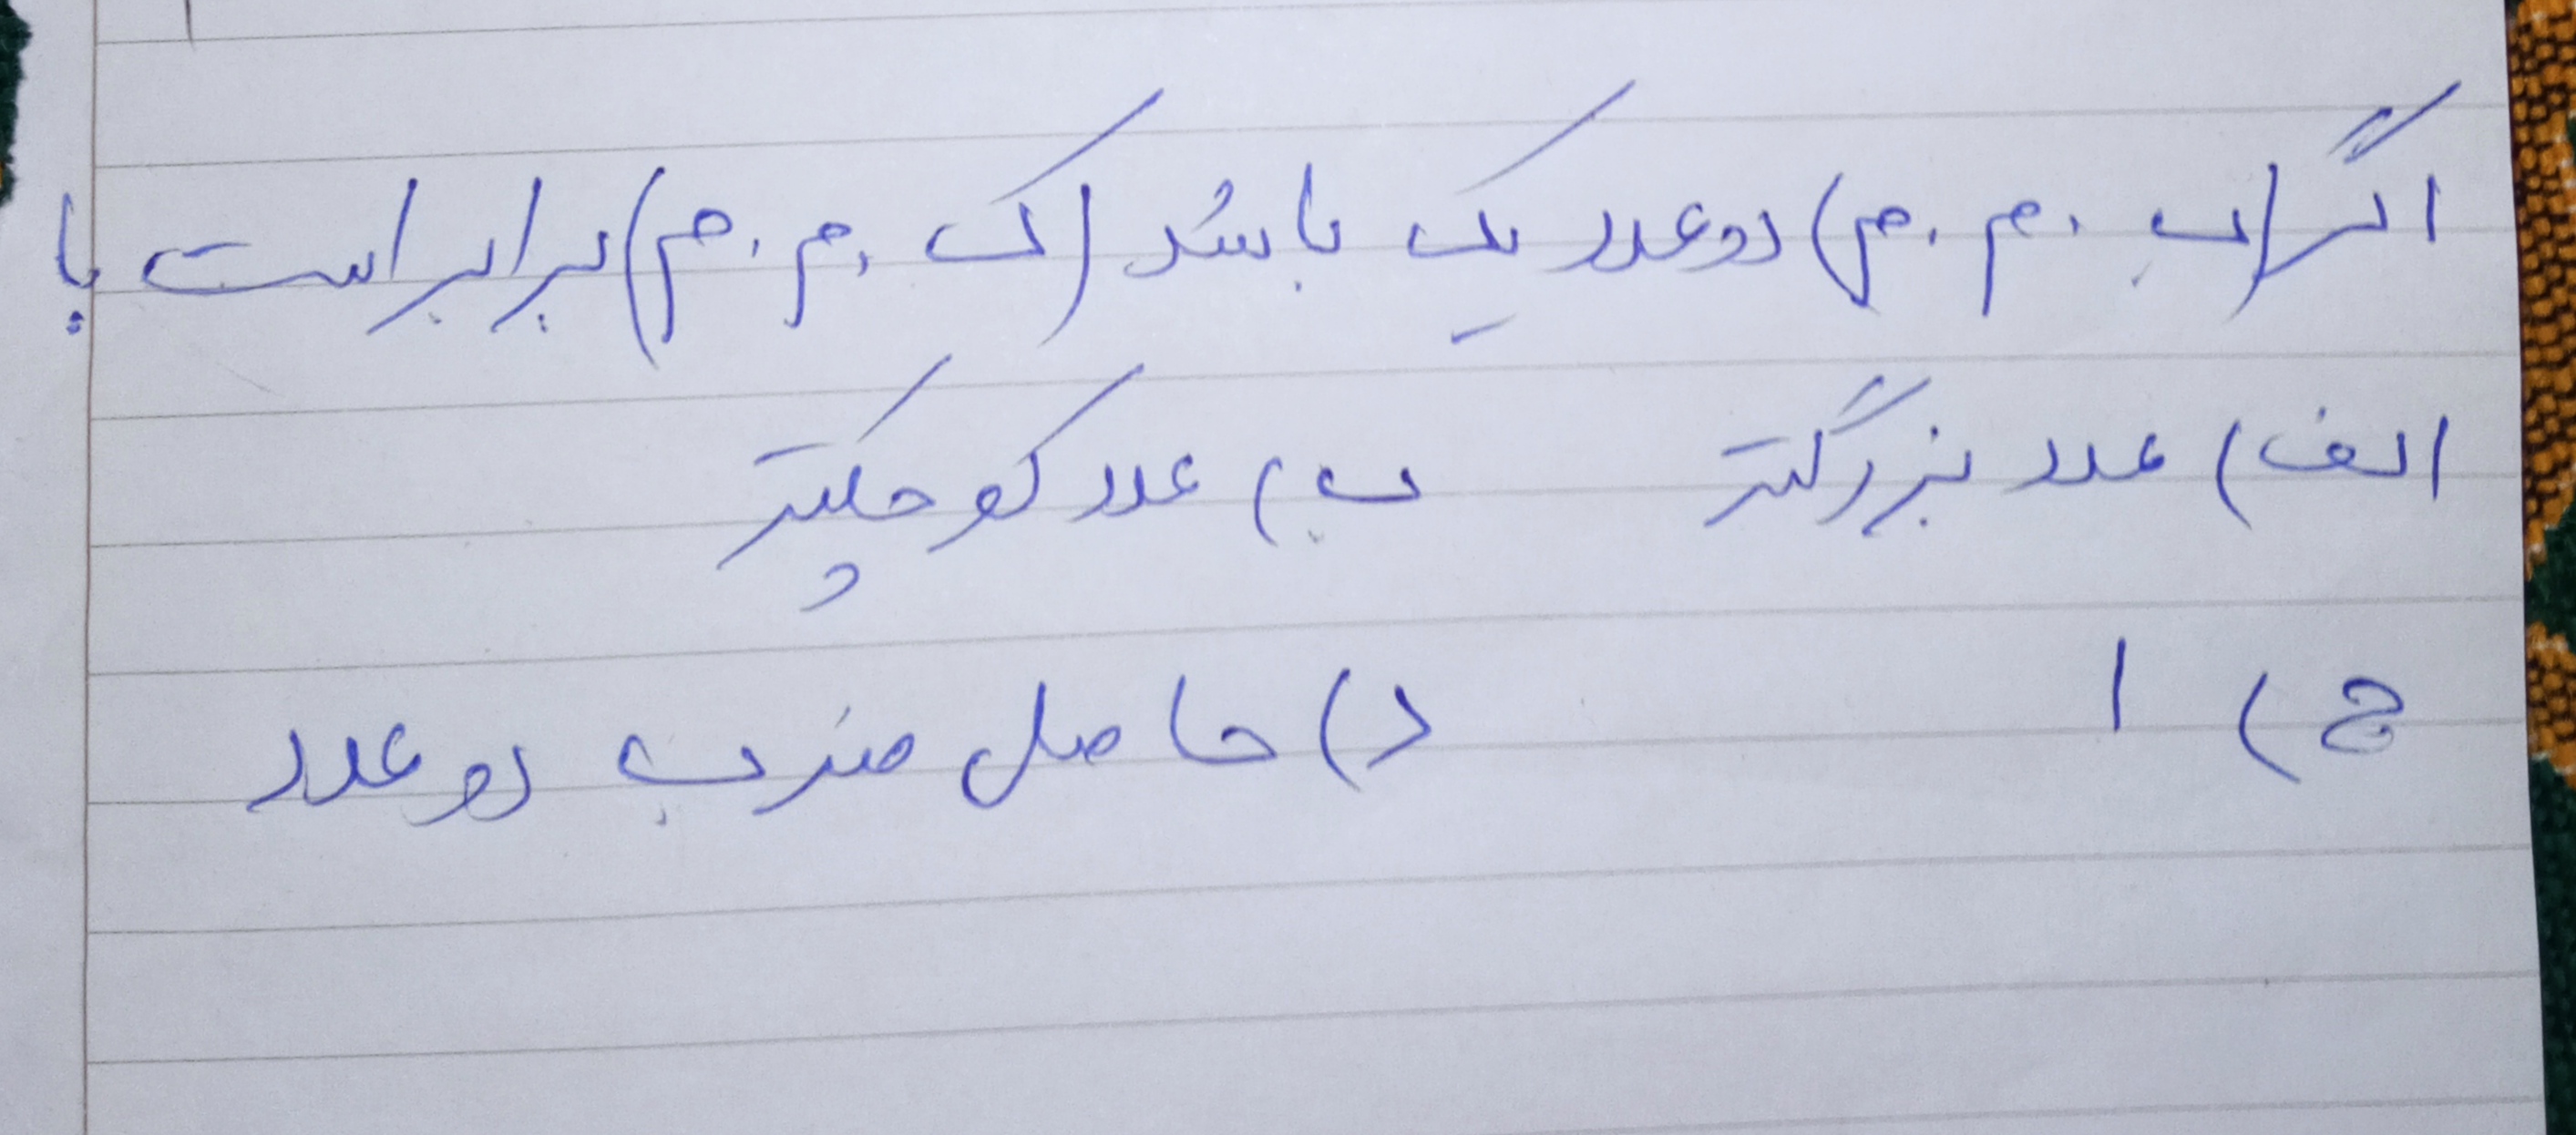 اگر (ب . م . م) دو عدد یک باشد (ک . م . م) برابر است با
الف) عدد بزرگتر ب) عدد کوچکتر
ج) ۱ د) حاصل ضرب دو عدد